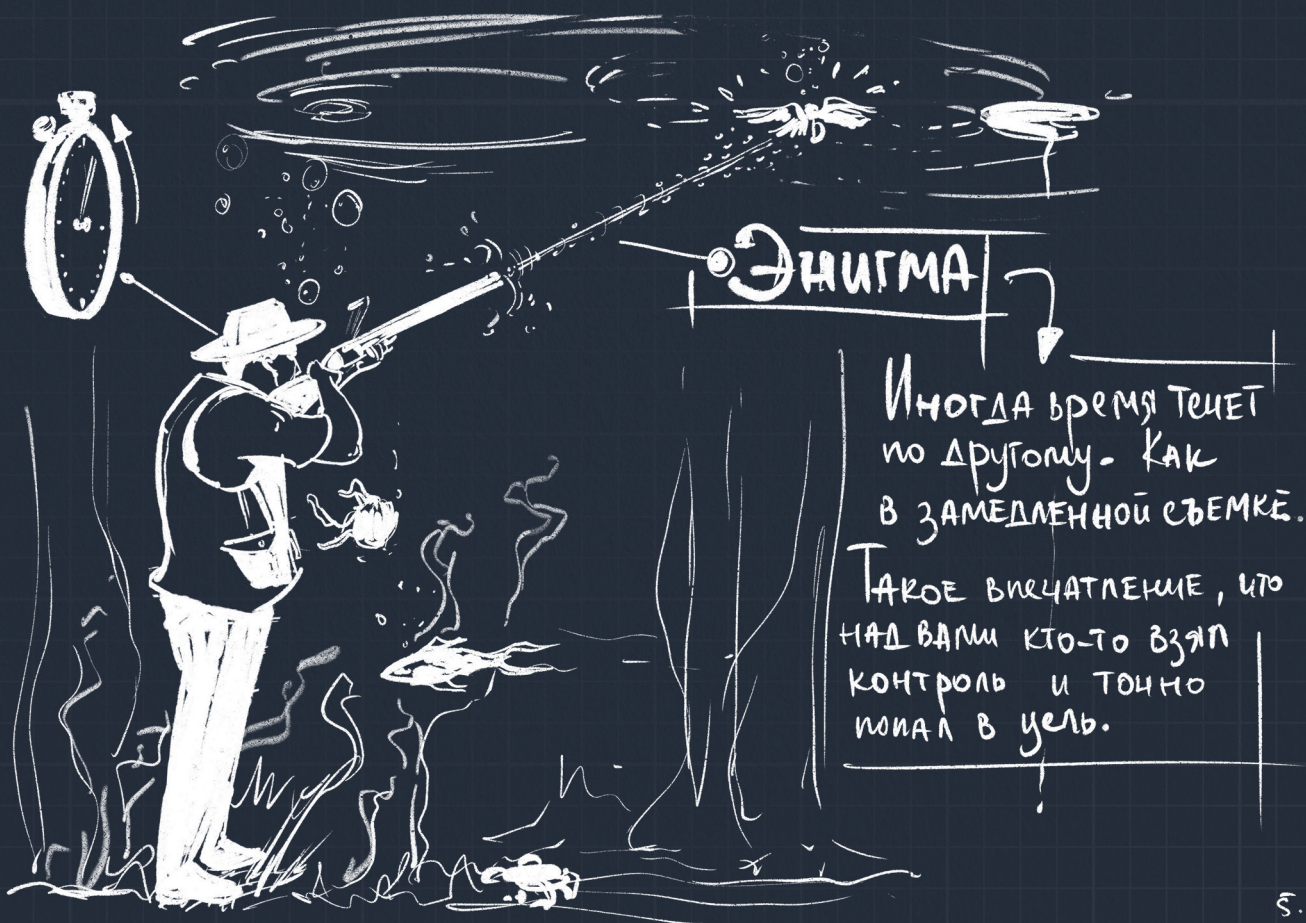 Энигма
Иногда время течет
по другому. Как
в замедленной съемке.
Такое впечатление, что
над вами кто-то взял
контроль и точно
попал в цель.
S.